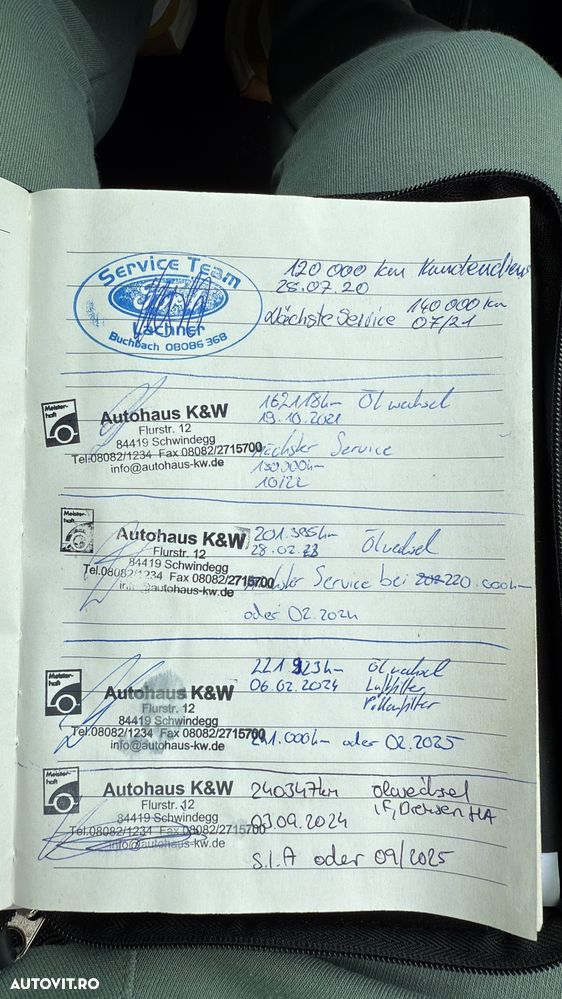 Service Team
Lechner
Buchbach 08086 368
120 000 km Kundendiens
28.07.20
Nächste Service 140 000 km
07/21
Meister-
haft
Autohaus K&W
Flurstr. 12
84419 Schwindegg
Tel.08082/1234 Fax 08082/2715700
info@autohaus-kw.de
162118km Ölwechsel
19.10.2021
Nächster Service
180000km
10/22
Meister-
haft
Autohaus K&W
Flurstr. 12
84419 Schwindegg
Tel.08082/1234 Fax 08082/2715700
info@autohaus-kw.de
201.385km Ölwechsel
28.02.23
Nächster Service bei 220.000km
oder 02.2024
Meister-
haft
Autohaus K&W
Flurstr. 12
84419 Schwindegg
Tel.08082/1234 Fax 08082/2715700
info@autohaus-kw.de
221 923km Ölwechsel
06.02.2024 Luftfilter
Pollenfilter
241.000km oder 02.2025
Meister-
haft
Autohaus K&W
Flurstr. 12
84419 Schwindegg
Tel.08082/1234 Fax 08082/2715700
info@autohaus-kw.de
240347km Ölwechsel
03.09.2024 iF, Bremsen HA
S.I.A oder 09/2025
AUTOVIT.RO